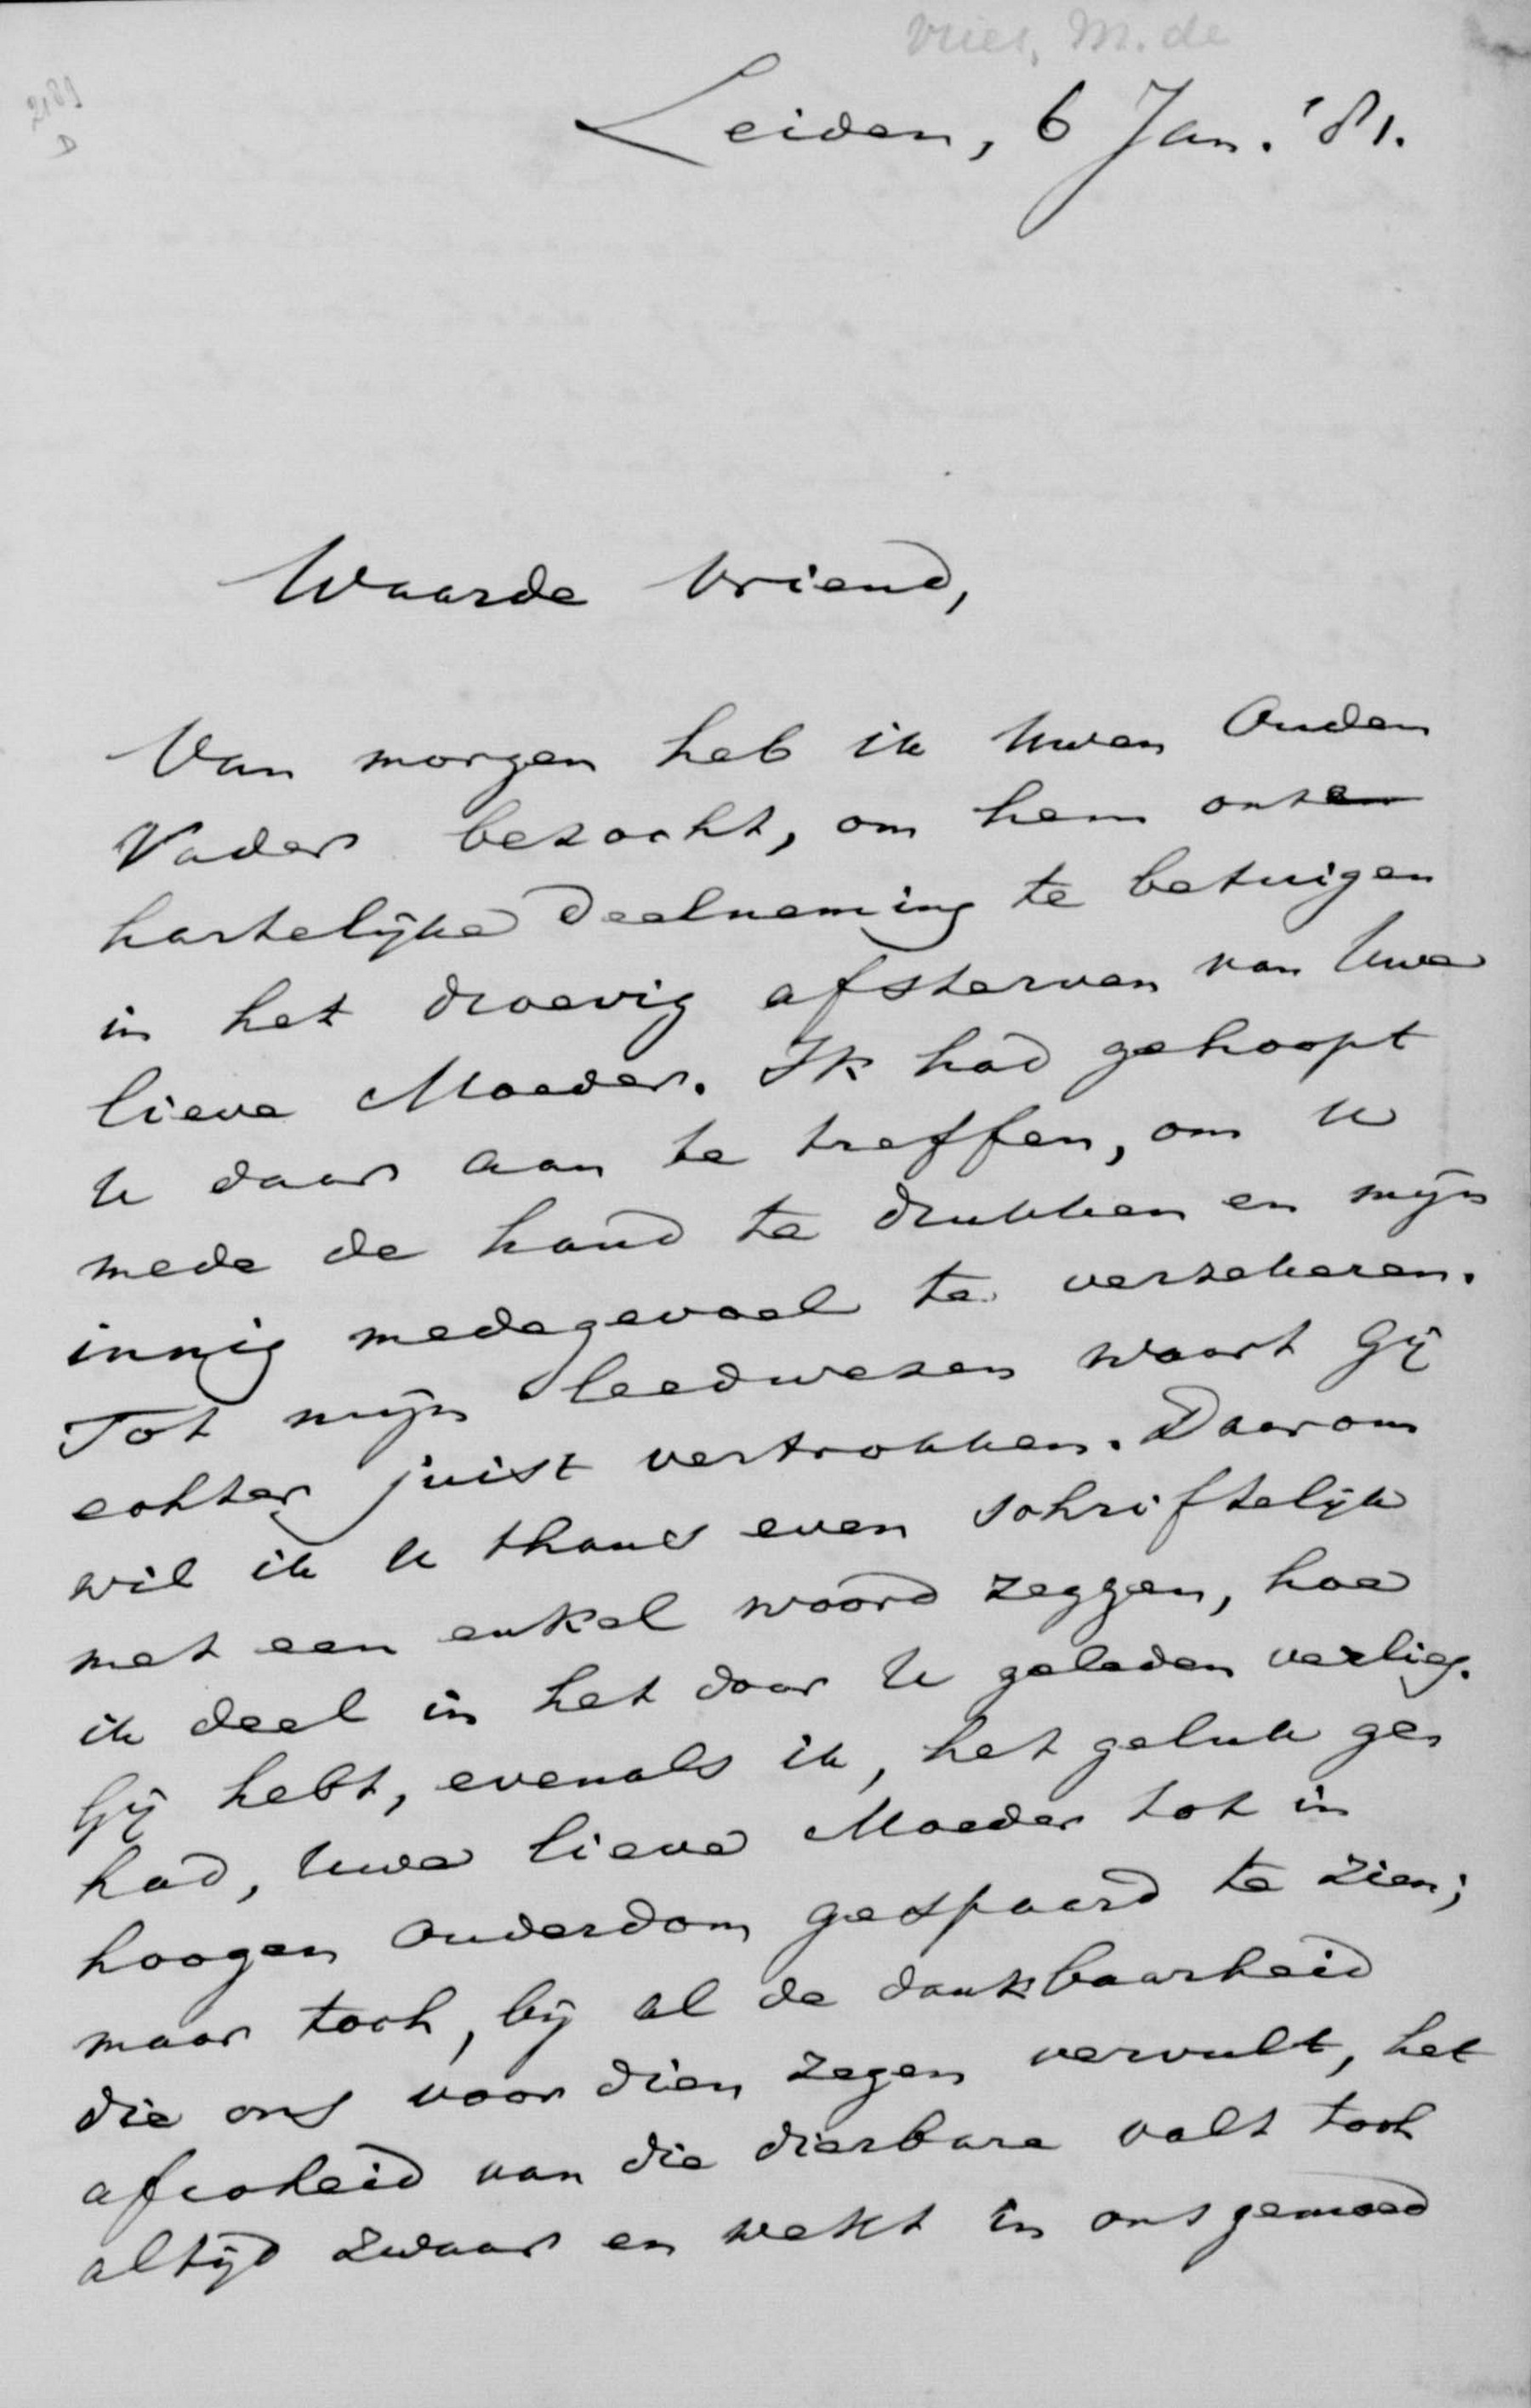 Vries, M. de
2189
D
Leiden, 6 Jan. '81.
Waarde Vriend,
Van morgen heb ik Uwen Ouden
Vader bezocht, om hem onze
hartelijke deelneming te betuigen
in het droevig afsterven van Uwe
lieve Moeder. Ik had gehoopt
U daar aan te treffen, om U
mede de hand te drukken en mijn
innig medegevoel te verzekeren.
Tot mijn leedwezen waart Gij
echter juist vertrokken. Daarom
wil ik U thans even schriftelijk
met een enkel woord zeggen, hoe
ik deel in het door U geleden verlies.
Gij hebt, evenals ik, het geluk ge-
had, Uwe lieve Moeder tot in
hoogen ouderdom gespaard te zien;
maar toch, bij al de dankbaarheid
die ons voor dien zegen vervult, het
afscheid van die dierbare valt toch
altijd zwaar en wekt in ons gemoed